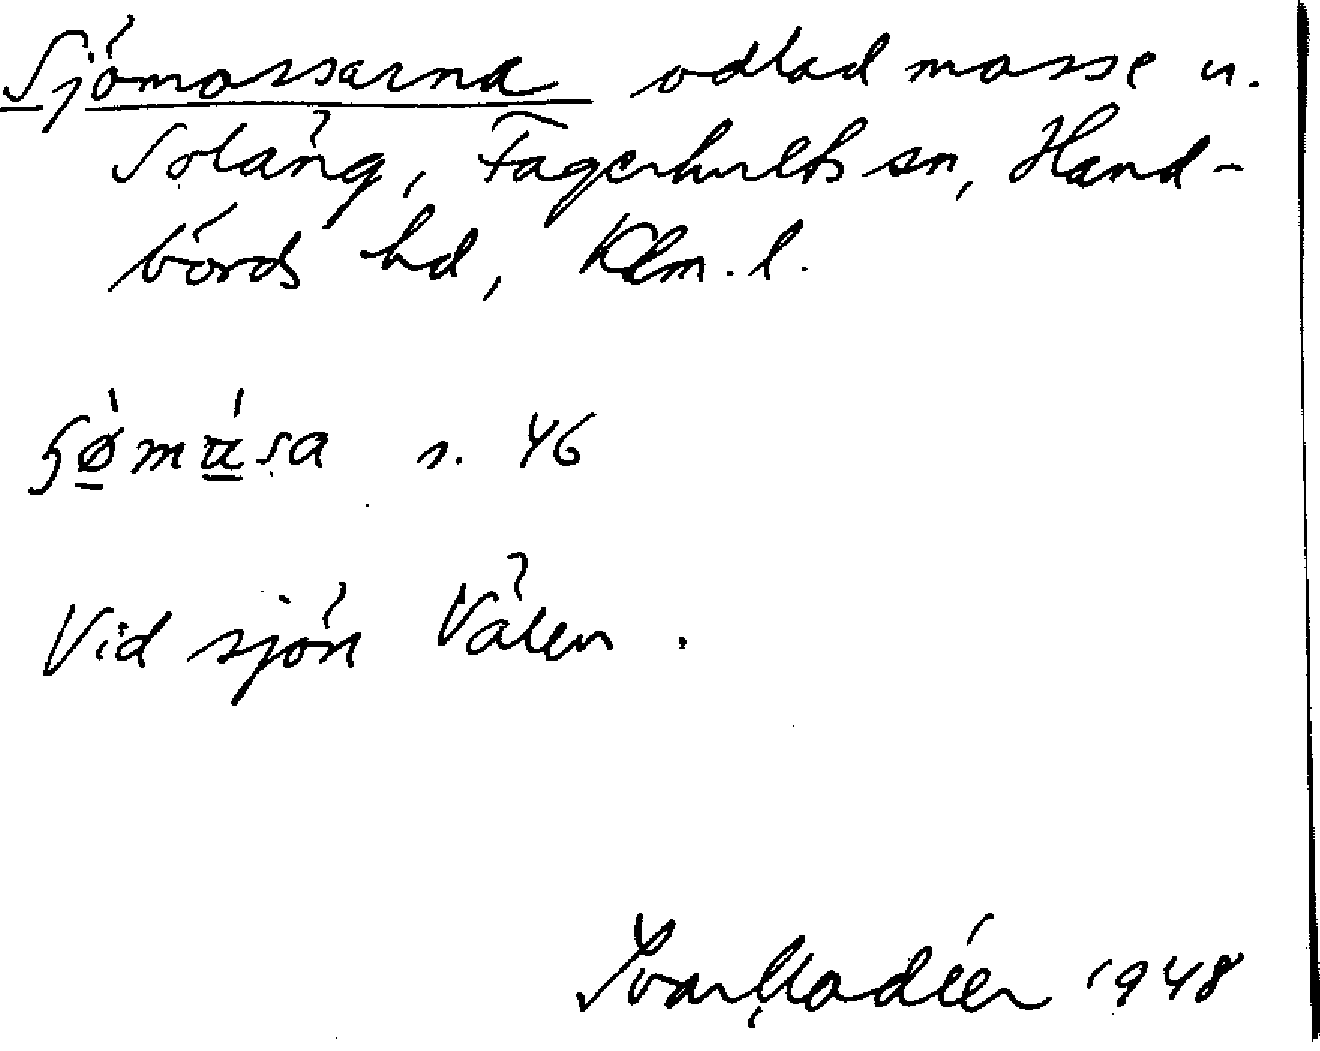 Sjömossarna odlad mosse u.
Solång, Fagerhults sn, Hand-
börds hd, Klm. l.
s. 46
Vid sjön Välen.
Ivar Modéer 1948